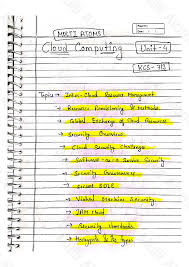 MULTI ATOMS
Cloud Computing
Unit-4
KCS-713
Topics → Inter-Cloud Resource Management
→ Resource Provisioning & methods
→ Global Exchange of Cloud Resources
→ Security Overview
→ Cloud Security Challenges
→ Software-as-a-Service Security
→ Security Governance
→ Virtual Machine Security
→ IAM cloud
→ Security Standards